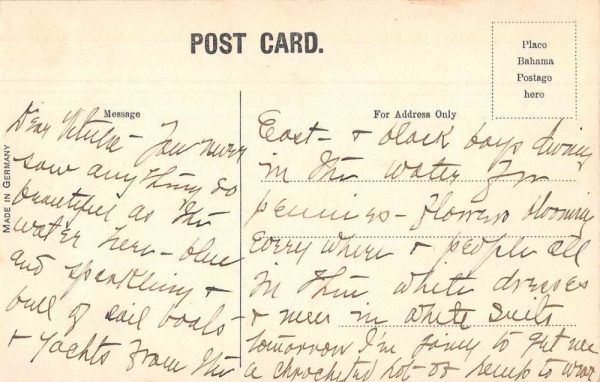 POST CARD.
Place
Bahama
Postage
here
MADE IN GERMANY
Message
Dear - You never
saw anything so
beautiful as the
water here - blue
and sparkling &
full of sail boats -
& yachts from the
For Address Only
East - & black boys diving
in the water for
pennies - flowers blooming
every where & people all
in thin white dresses
& men in white suits
tomorrow I'm going to get me
a chrocheted hat of hemp to wear